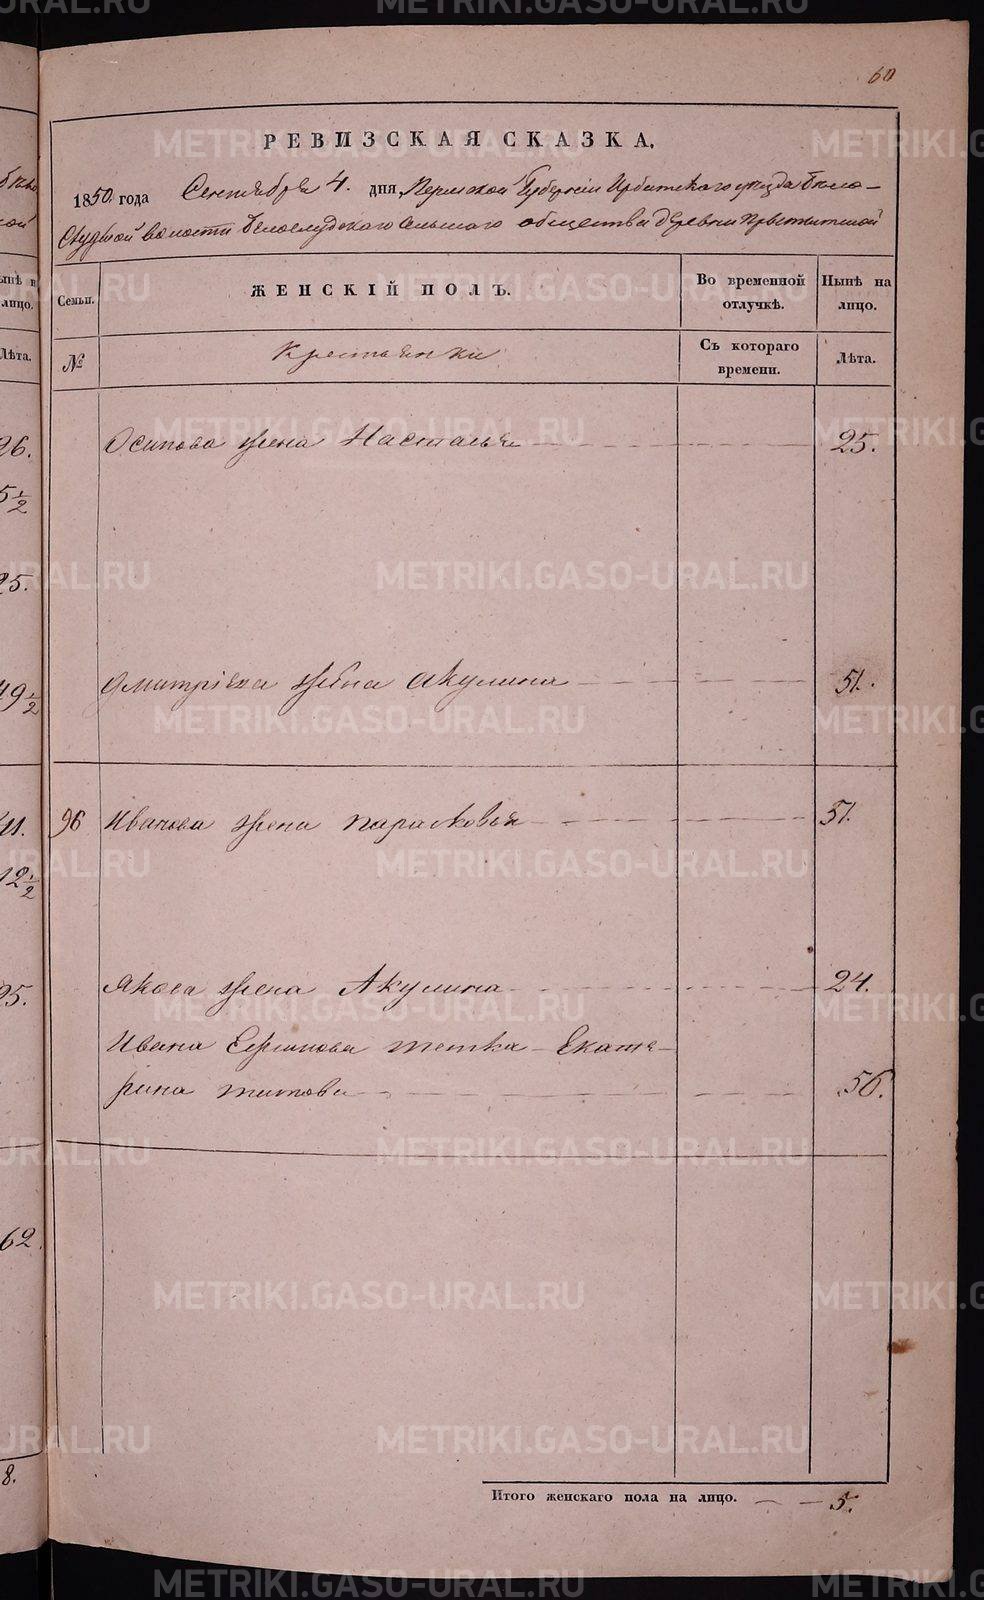 60
РЕВИЗСКАЯ СКАЗКА.
1850 года Сентября 4. дня, Пермской Губернии Ирбитского уезда Бело-
Слудской волости Белослудского Сельскаго общества деревни
Семьи. ЖЕНСКІЙ ПОЛЪ. Во временной отлучкѣ. Нынѣ на лицо.
№ Крестьянки Съ котораго времени. Лѣта.
Осипова жена Настасья 25.
Дмитріева жена Акулина 51.
96 Иванова жена Парасковья 51.
Якова жена Акулина 24.
Ивана Ефимова тетка Екате-
рина Титова 56.
Итого женскаго пола на лицо. 5.
26.
5 1/2
25.
49 1/2
41.
12 1/2
62.
8.
METRIKI.GASO-URAL.RU